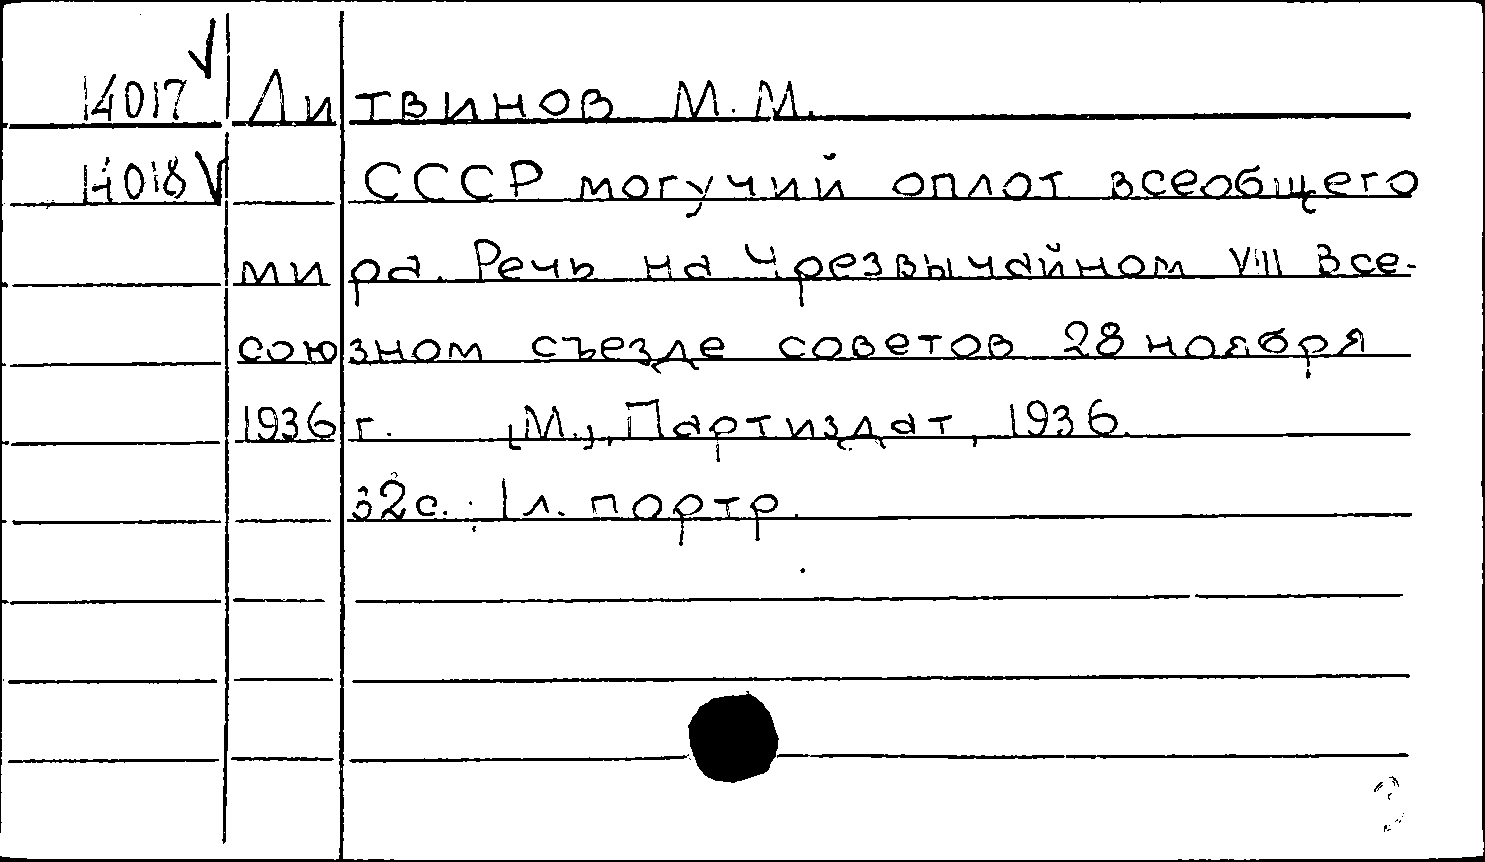 14017 V Литвинов М.М.
14018 V СССР могучий оплот всеобщего
мира. Речь на Чрезвычайном VIII Все-
союзном съезде советов 28 ноября
1936 г. [М.], Партиздат, 1936.
32с.; 1 л. портр.